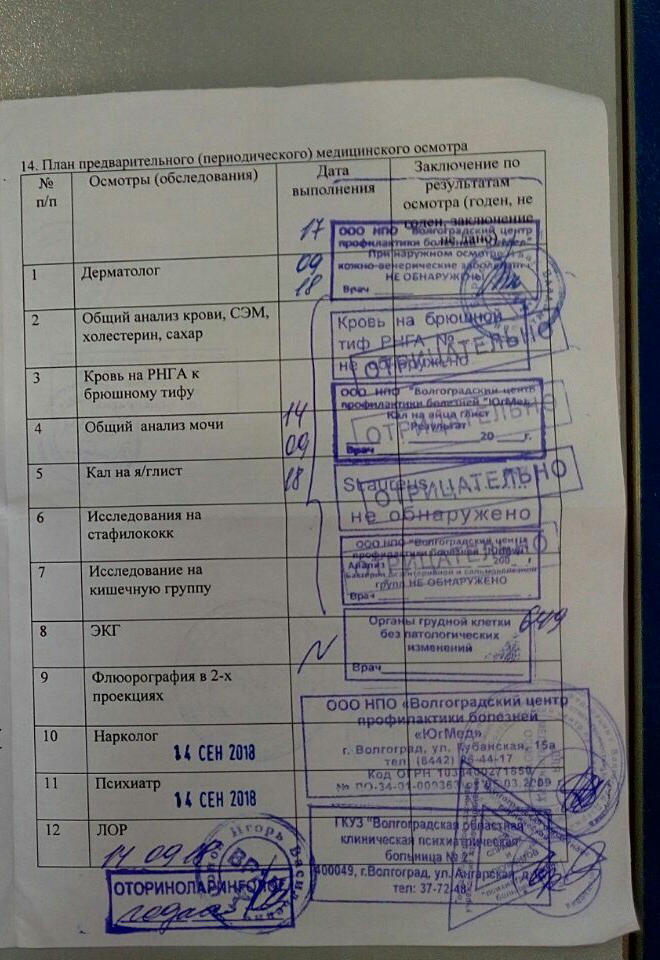 14. План предварительного (периодического) медицинского осмотра
№ п/п
Осмотры (обследования)
Дата выполнения
Заключение по результатам осмотра (годен, не годен, заключение не дано)
1 Дерматолог
17 09 18
ООО НПО "Волгоградский центр
профилактики болезней "ЮгМед"
При наружном осмотре
кожно-венерические заболевания
НЕ ОБНАРУЖЕНЫ
Врач
2 Общий анализ крови, СЭМ,
холестерин, сахар
Кровь на брюшной
тиф РНГА №
не обнаружено
ОТРИЦАТЕЛЬНО
3 Кровь на РНГА к
брюшному тифу
ООО НПО "Волгоградский центр
профилактики болезней "ЮгМед"
Кал на яйца глист
Результат
20 г.
Врач
ОТРИЦАТЕЛЬНО
4 Общий анализ мочи
14 09 18
5 Кал на я/глист
St.aureus
не обнаружено
ОТРИЦАТЕЛЬНО
6 Исследования на
стафилококк
ООО НПО "Волгоградский центр
профилактики болезней "ЮгМед"
Анализ 200 г
групп НЕ ОБНАРУЖЕНО
Врач
ОТРИЦАТЕЛЬНО
7 Исследование на
кишечную группу
8 ЭКГ
Органы грудной клетки
без патологических
изменений
Врач
9 Флюорография в 2-х
проекциях
ООО НПО «Волгоградский центр
профилактики болезней
«ЮгМед»
г. Волгоград, ул. Кубанская, 15а
тел. (8442) 26-44-17
Код ОГРН
10 Нарколог
14 СЕН 2018
11 Психиатр
14 СЕН 2018
ГКУЗ "Волгоградская областная
клиническая психиатрическая
больница № 2"
400049, г.Волгоград, ул. Ангарская, д.
тел: 37-72-48
12 ЛОР
14 09 18
ОТОРИНОЛАРИНГОЛОГ
годна
ВРАЧ
Игорь